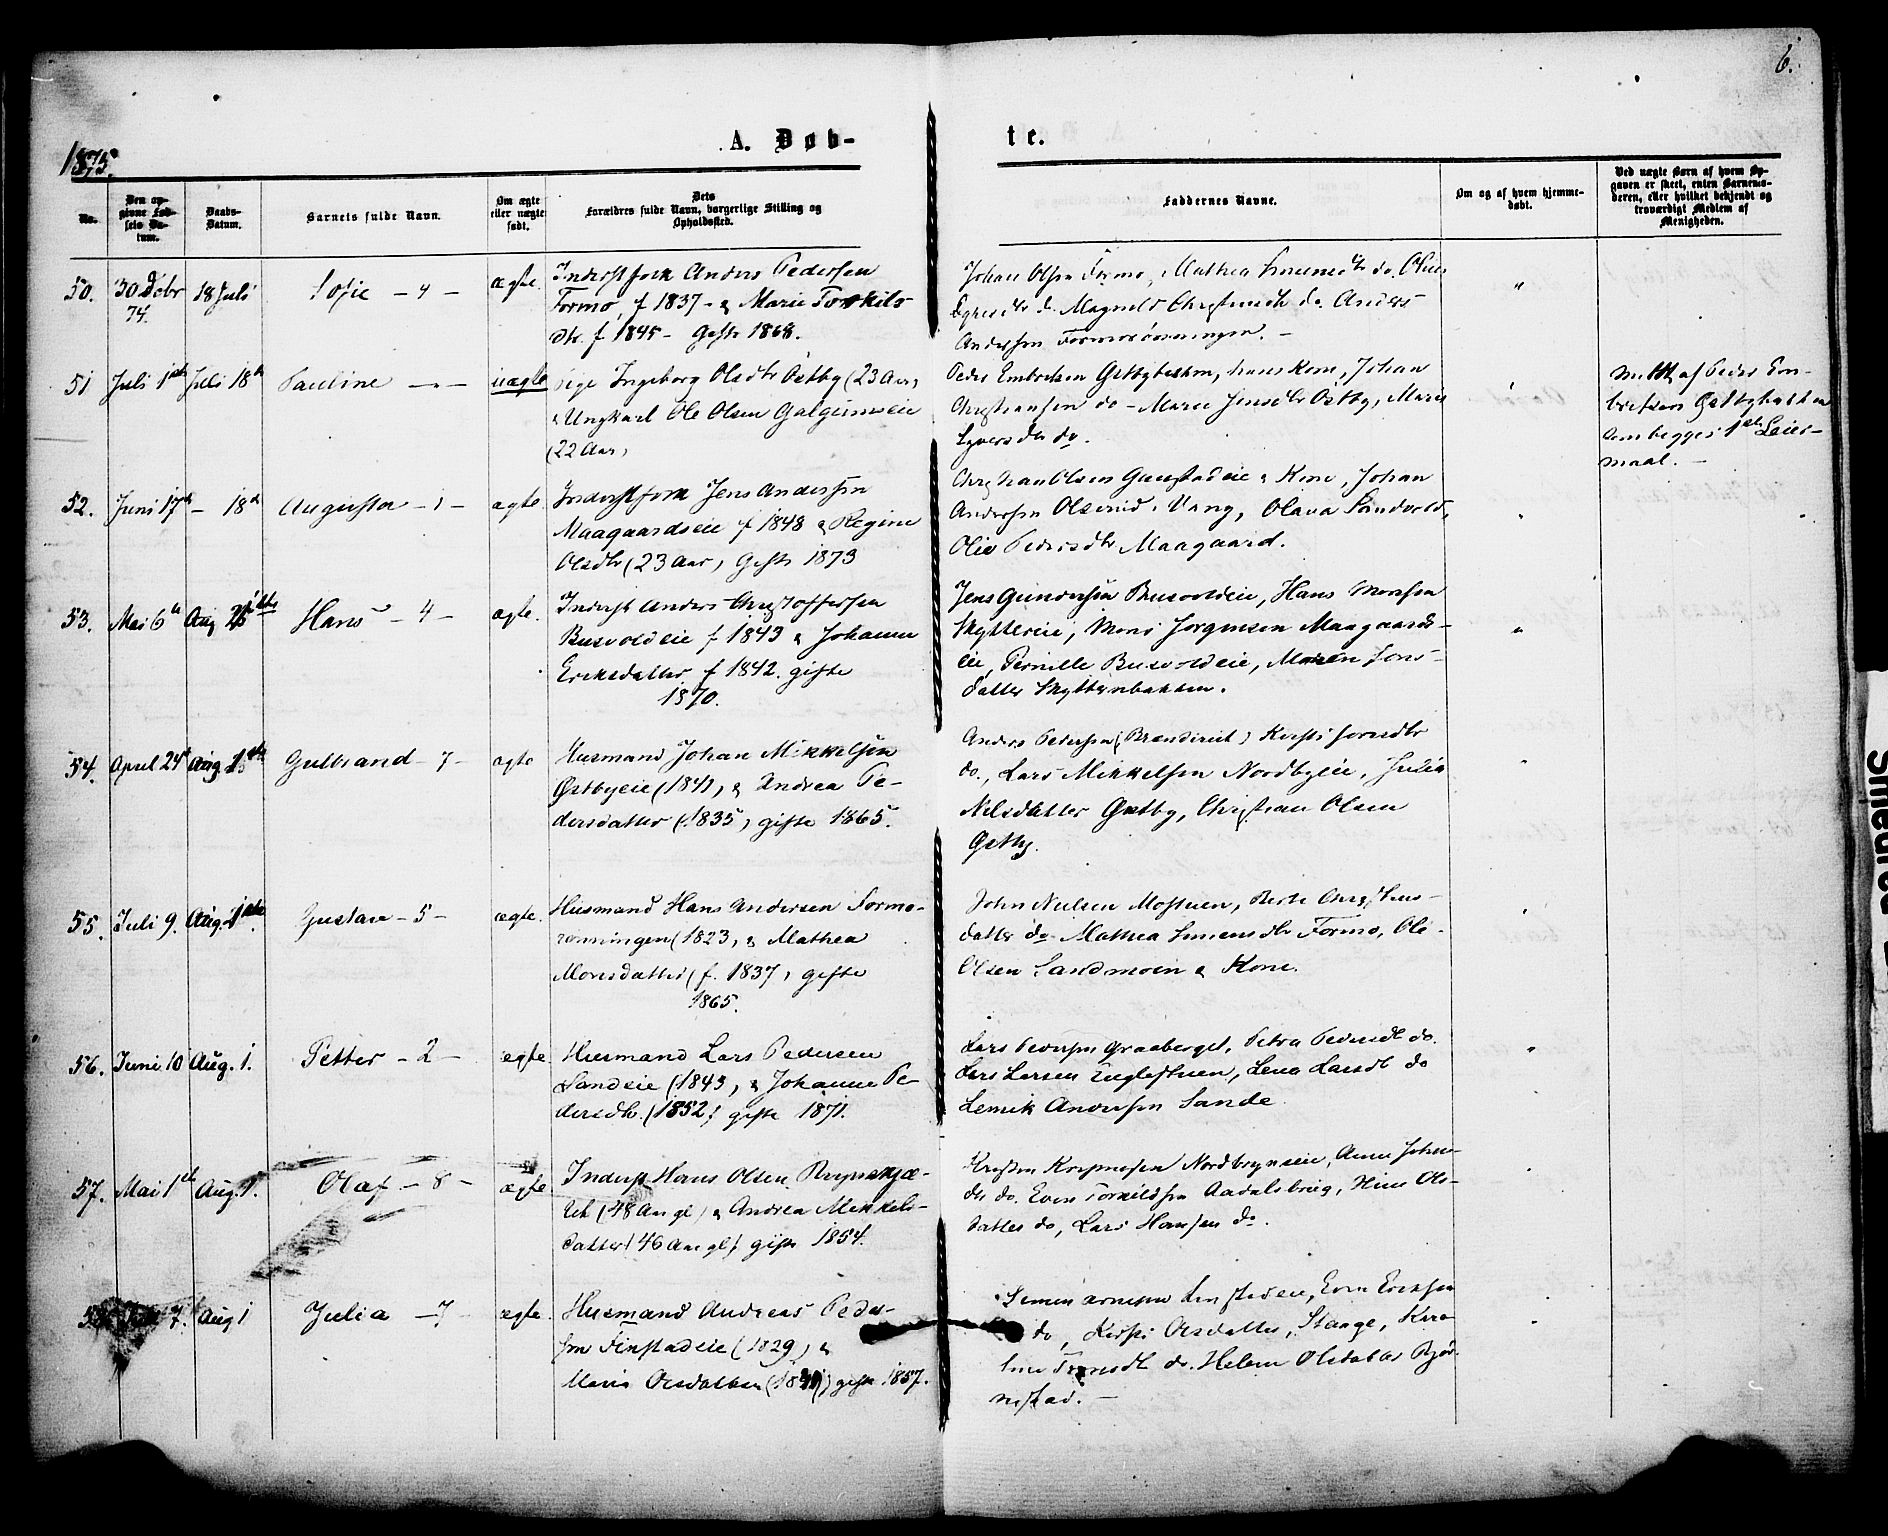 6.
1875.
A. Døb-
te.
No.
Den op-
givne Fød-
sels Da-
tum.
Daabs-
Datum.
Barnets fulde Navn.
Om ægte
eller uægte
født.
Dets
Forældres fulde Navn, borgerlige Stilling og
Opholdssted.
Faddernes Navne.
Om og af hvem hjemme-
døbt.
Ved uægte Børn af hvem Op-
gaven er skeet, enten Barnemo-
deren, eller hvilket bekjendt og
troværdigt Medlem af
Menigheden.
50. 30 Debr 18 Juli Sofie - 4 - ægte. Inderstfolk Anders Pedersen
74. Formo, f 1837 - & Marie Torkils
dtr. f 1845 - Gifte 1868.
Johan Olsen Formo, Mathea Simensdtr do. Oline
do Magnild do Anders
Andersen Formorønningen. -
"
51 Juli 1ste Juli 18de Pauline - - uægte Pige Ingeborg Olsdtr Østby (23 Aar)
& Ungkarl Ole Olsen Galgumseie
(22 Aar)
Peder Embretsen Østbybakken, hans Kone, Johan
Christiansen do - Maren Jensdtr Østby, Marie
Syversdtr do.
meldt af Peder Em-
bretsen Østbybakken
dem begges 1ste Leier-
maal. -
52. Juni 17de - 18de Augusta - 1 - ægte. Inderstfolk Jens Andersen
Maagaardseie f 1848 & Regine
Olsdtr (23 Aar) Gifte 1873
Christian Olsen & Kone, Johan
Andersen i Vang, Olava Sandvold,
Olie Pedersdtr Maagaard.
53. Mai 6te Aug Hans - 4 - ægte. Inderst Anders Christoffersen
Busvoldeie f 1843 & Johanne
Eriksdatter f 1842. gifte
1870.
Jens Gundersen Busvoldeie, Hans Monsen
Skyttereie, Mons Jørgensen Maagaards-
eie, Pernille Busvoldeie, Maren Jons-
datter Skytterbakken.
"
54. April 24de Aug. 1ste Gulbrand - 7 - ægte Husmand Johan Mikkelsen
Østbyeie (1841) & Andrea Pe-
dersdatter (1835) gifte 1865.
Anders Pedersen ( ) Kersti Jonsdtr
do., Lars Mikkelsen Nordbyeie, Julia
Nilsdatter Østby, Christian Olsen
Østby.
55. Juli 9. Aug. 1ste Gustav - 5 - ægte. Husmand Hans Andersen Formo-
rønningen (1823) & Mathea
Monsdatter (f. 1837) gifte
1865.
John Nielsen Mostuen, Berte Christians-
datter do Mathea Simensdtr Formo, Ole
Olsen Sandmoen & Kone.
56. Juni 10 Aug. 1. Petter - 2 - ægte. Husmand Lars Pedersen
Sandeie (1843) & Johanne Pe-
dersdtr. (1852) gifte 1871.
Lars Pedersen Graaberget, Petra Pedersdtr do.
Lars Larsen Teglestuen, Lena Larsdtr do
Lemik Andersen Sande
"
57. Mai 1ste Aug. 1. Olaf - 8 - ægte Inderst Hans Olsen
(48 Aar gl) & Andrea Mikkels-
datter (46 Aar gl) gifte 1854.
Nordbrynseie, Anne Johans-
dtr do. Even Torkildsen Aadalsbrug, Ols-
datter do, Lars Hansen do.
7. Aug 1 Julia - 7 - ægte. Husmand Andreas Peder-
sen Finstadeie (1829) &
Maria Olsdatter gifte 1857.
Simen Arnesen Finstadeie, Even Eriksen
do, Kersti Olsdatter, Stange, Karo-
line do. Helene Olsdatter Bjør-
nstad. -